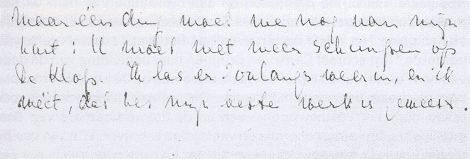 Maar één ding moet me nog van mijn
hart: U moet niet meer schimpen op
De Klop. Ik las er onlangs weer in, en ik
weet, dat het mijn beste werk is geweest.